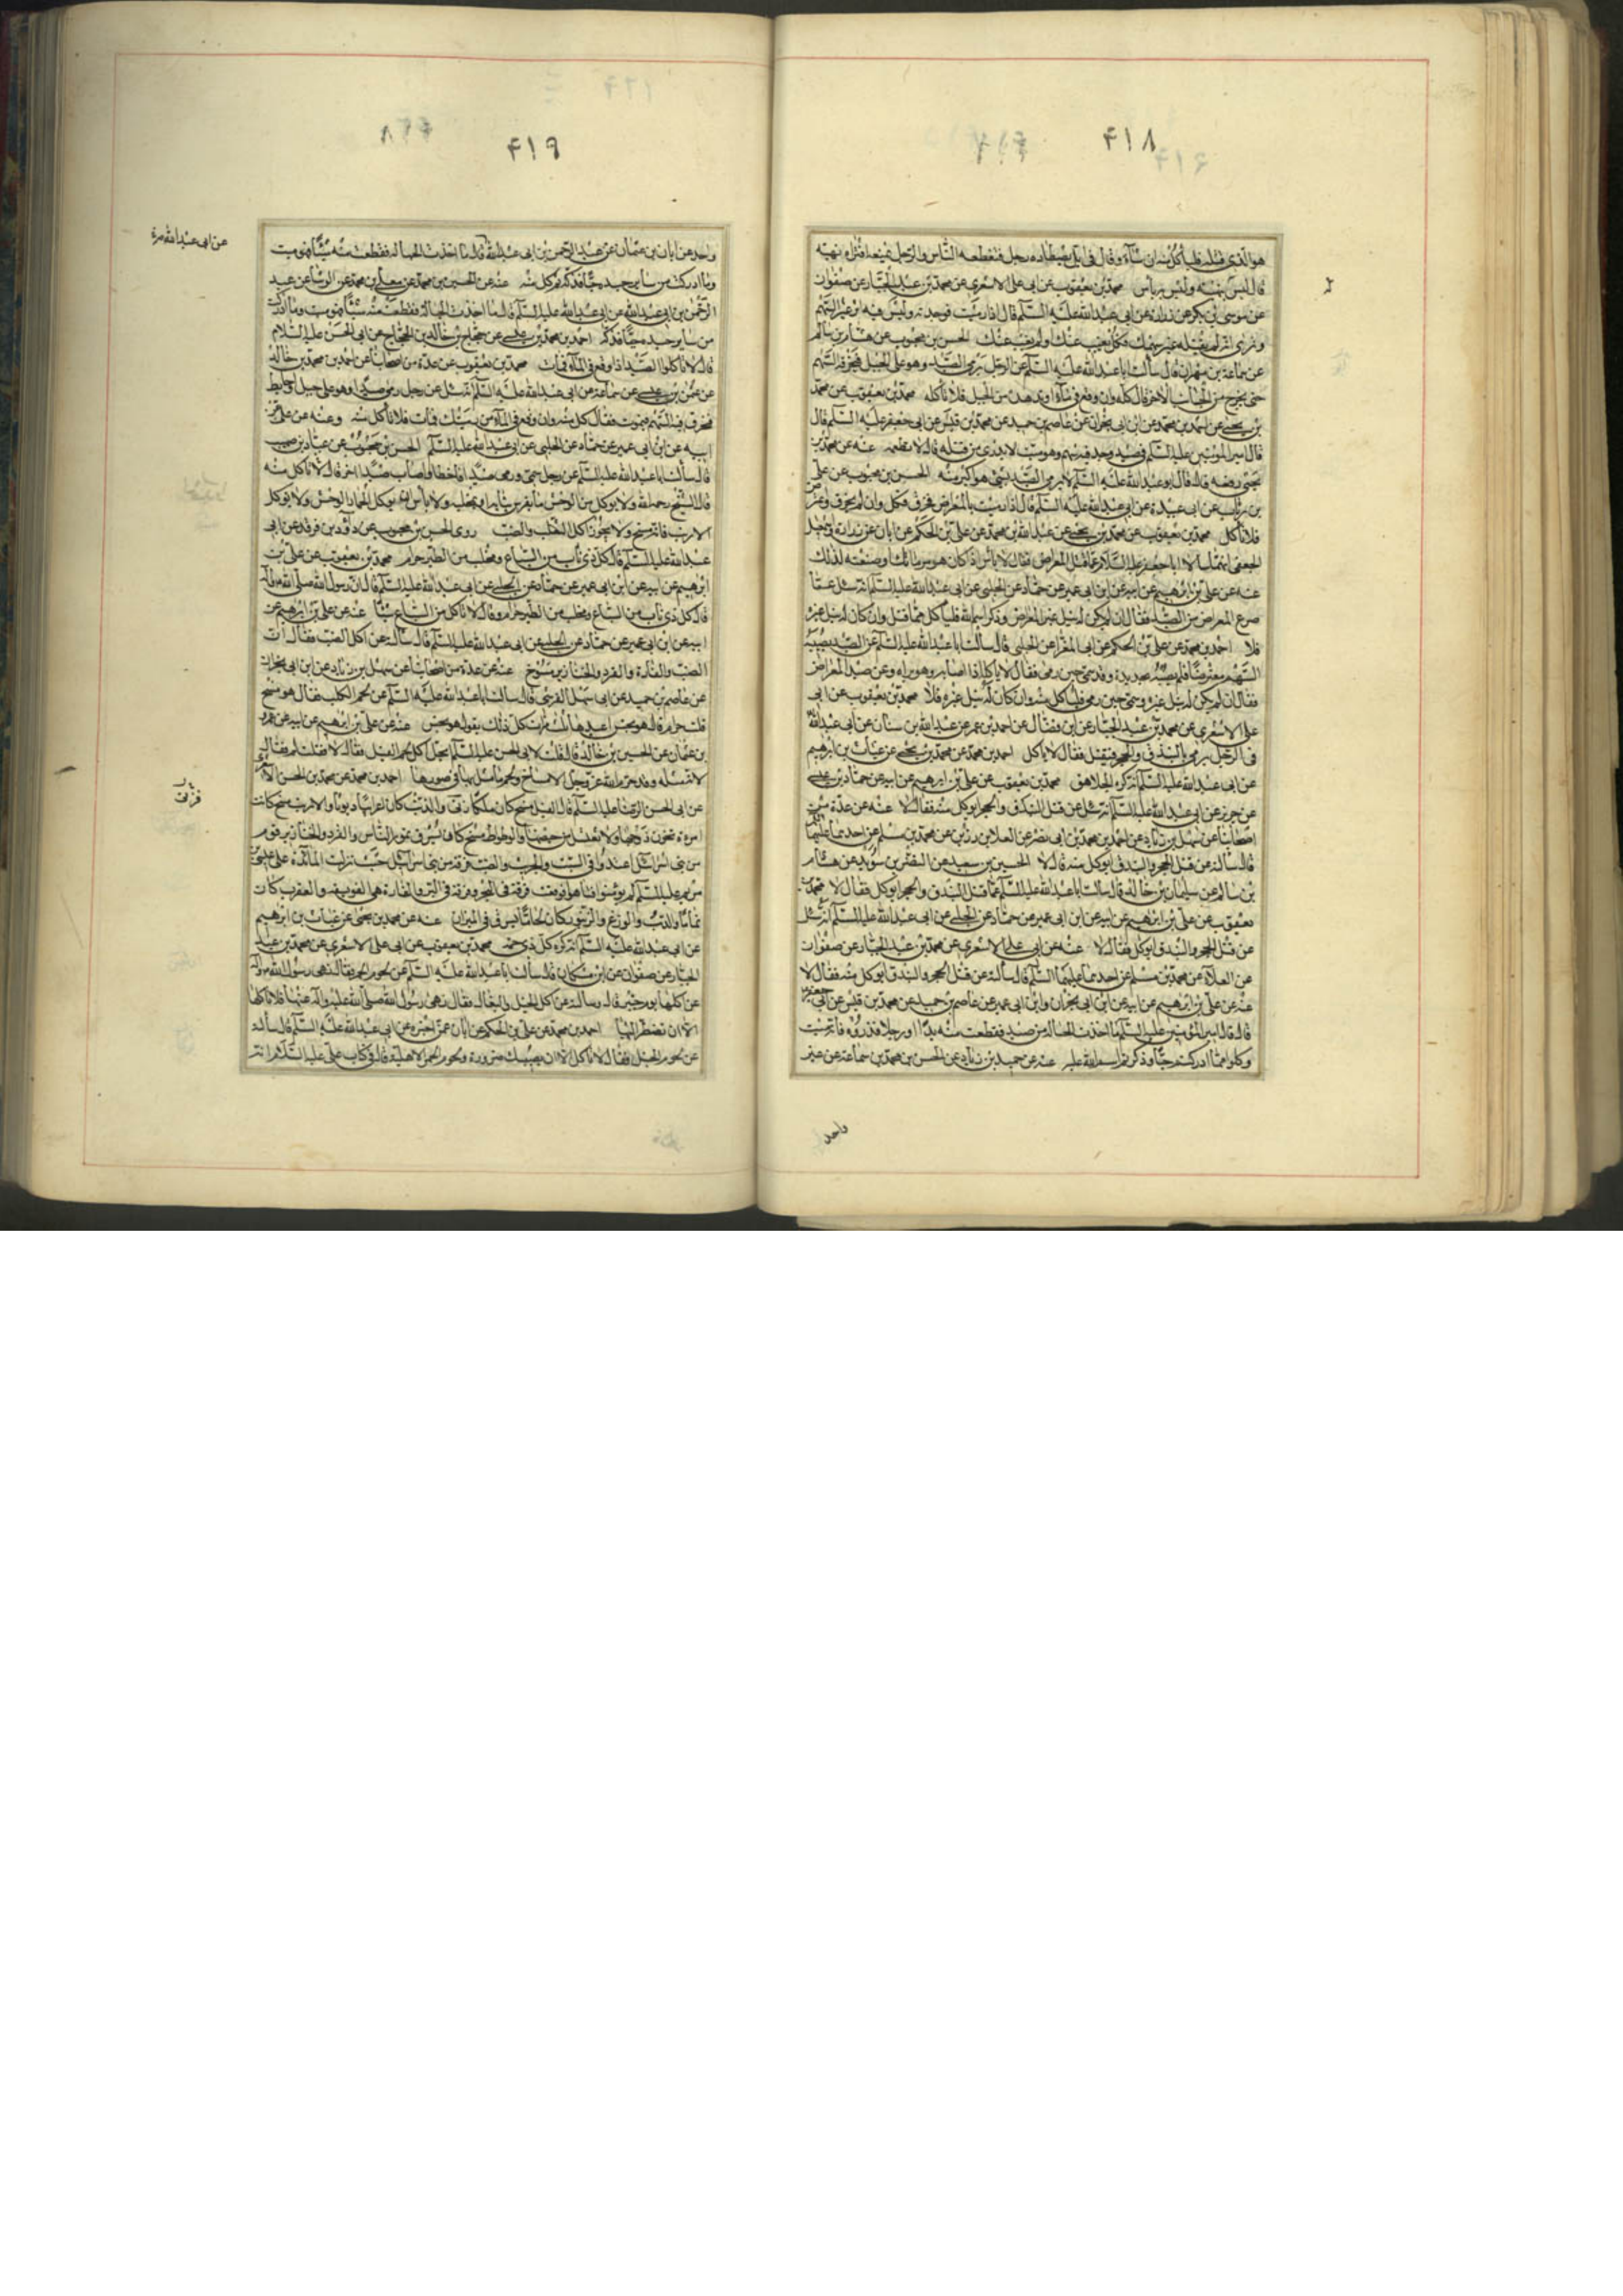 ۴۱۸
هو الذی قتله فلیأکل منه ان شآء وقال فی ایل یصطاده رجل فتقطعه الناس والرجل یتبعه افتراه نهبة
قال لیس بنهبة ولیس به باس محمد بن یعقوب عن ابی علی الاشعری عن محمد بن عبد الجبار عن صفوان
عن موسی بن بکر عن زرارة عن ابی عبد الله علیه السلم قال اذا رمیت فوجدته ولیس فیه اثر غیر السهم
وتری انه لم یقتله غیر سهمک فکل یغیب عنک او لم یغب عنک الحسن بن محبوب عن هشام بن سالم
عن سماعة بن مهران قال سألت ابا عبد الله علیه السلم عن الرجل یرمی الصید وهو علی الجبل فیخرقه السهم
حتی یخرج من الجانب الاخر قال کله وان وقع فی مآء او تدهده من الجبل فلا تأکله محمد بن یعقوب عن محمد
بن یحیی عن احمد بن محمد عن ابن ابی نجران عن عاصم بن حمید عن محمد بن قیس عن ابی جعفر علیه السلم قال
قال امیر المؤمنین علیه السلم فی صید وجد فیه سهم وهو میت لا یدری من قتله قال لا تطعمه عنه عن محمد بن
یحیی رفعه قال قال ابو عبد الله علیه السلم لا یرمی الصید بشئ هو اکبر منه الحسن بن محبوب عن علی
بن رئاب عن ابی عبیدة عن ابی عبد الله علیه السلم قال اذا رمیت بالمعراض فخرق فکل وان لم یخرق واعترض
فلا تأکل محمد بن یعقوب عن محمد بن یحیی عن عبد الله بن محمد عن علی بن الحکم عن ابان عن زرارة واسمعیل
الجعفی انهما سألا ابا جعفر علیه السلام عما قتل المعراض فقال لا بأس اذا کان هو مرماتک او صنعته لذلک
عنه عن علی بن ابرهیم عن ابیه عن ابن ابی عمیر عن حماد عن الحلبی عن ابی عبد الله علیه السلم انه سئل عما
صرع المعراض من الصید فقال ان لم یکن له نبل غیر المعراض وذکر اسم الله فلیأکل مما قتل وان کان له نبل غیره
فلا احمد بن محمد عن علی بن الحکم عن ابی المغرا عن الحلبی قال سألت ابا عبد الله علیه السلم عن الصید یصیبه
السهم معترضا فلم یصبه بحدیدة وقد سمی حین رمی فقال لا یأکله اذا اصابه وهو یراه وعن صید المعراض
فقال ان لم یکن له نبل غیره وسمی حین رمی فلیأکل منه وان کان له نبل غیره فلا محمد بن یعقوب عن ابی
علی الاشعری عن محمد بن عبد الجبار عن ابن فضال عن احمد بن عمر عن عبد الله بن سنان عن ابی عبد الله
فی الرجل یرمی بالبندق والحجر فیقتل فقال لا یأکل احمد بن محمد عن محمد بن یحیی عن غیاث بن ابرهیم
عن ابی عبد الله علیه السلم انه کره الجلاهق محمد بن یعقوب عن علی بن ابرهیم عن ابیه عن حماد بن عیسی
عن حریز عن ابی عبد الله علیه السلم انه سئل عن قتل البندق والحجر ایؤکل منه فقال لا عنه عن عدة من
اصحابنا عن سهل بن زیاد عن احمد بن محمد بن ابی نصر عن العلا بن رزین عن محمد بن مسلم عن احدهما علیهما السلم
قال سألته عن قتل الحجر والبندق ایؤکل منه قال لا الحسین بن سعید عن النضر بن سوید عن هشام
بن سالم عن سلیمان بن خالد قال سالت ابا عبد الله علیه السلم عما قتل البندق والحجر ایؤکل فقال لا محمد بن
یعقوب عن علی بن ابرهیم عن ابیه عن ابن ابی عمیر عن حماد عن الحلبی عن ابی عبد الله علیه السلم انه سئل
عن قتل الحجر والبندق ایؤکل فقال لا عنه عن ابی علی الاشعری عن محمد بن عبد الجبار عن صفوان
عن العلآء عن محمد بن مسلم عن احدهما علیهما السلم قال سألته عن قتل الحجر والبندق ایؤکل منه فقال لا
عنه عن علی بن ابرهیم عن ابیه عن ابن ابی نجران وابن ابی عمیر عن عاصم بن حمید عن محمد بن قیس عن ابی جعفر
قال قال امیر المؤمنین علیه السلم ما اخذت الحبالة من صید فقطعت منه یدا او رجلا فذروه فانه میت
وکلوا مما ادرکتم حیا وذکرتم اسم الله علیه عنه عن حمید بن زیاد عن الحسن بن محمد بن سماعة عن غیر
واحد
۴۱۹
واحد عن ابان بن عثمان عن عبد الرحمن بن ابی عبد الله قال ما اخذت الحبالة فقطعت منه شیئا فهو میت
وما ادرکت من سایر جسده حیا فذکه ثم کل منه عنه عن الحسین بن محمد عن معلی بن محمد عن الوشا عن عبد
الرحمن بن ابی عبد الله عن ابی عبد الله علیه السلم قال ما اخذت الحبالة فقطعت منه شیئا فهو میت وما ادرکت
من سایر جسده حیا فذکه احمد بن محمد بن عیسی عن حجاج بن خالد بن الحجاج عن ابی الحسن علیه السلام
قال لا تأکلوا الصید اذا وقع فی المآء فمات محمد بن یعقوب عن عدة من اصحابنا عن احمد بن محمد بن خالد
عن عثمن بن عیسی عن سماعة عن ابی عبد الله علیه السلم انه سئل عن رجل رمی صیدا وهو علی جبل او حایط
فیخرق فیه السهم فیموت فقال کل منه وان وقع فی المآء من رمیتک فمات فلا تأکل منه وعنه عن علی عن
ابیه عن ابن ابی عمیر عن حماد عن الحلبی عن ابی عبد الله علیه السلم الحسن بن محبوب عن عباد بن صهیب
قال سألت ابا عبد الله علیه السلم عن رجل سمی ورمی صیدا فاخطا واصاب صیدا اخر قال لا تأکل منه
قال الشیخ رحمه الله ولا یؤکل من الوحش ما یفترس بنابه او بمخلبه ولا باس ان یؤکل الحمار الوحش ولا یؤکل
الارنب فانه مسخ ولا یجوز اکل الثعلب والضب روی الحسن بن محبوب عن داود بن فرقد عن ابی
عبد الله علیه السلم قال کل ذی ناب من السباع ومخلب من الطیر حرام محمد بن یعقوب عن علی بن
ابرهیم عن ابیه عن ابن ابی عمیر عن حماد عن الحلبی عن ابی عبد الله علیه السلم قال ان رسول الله صلی الله علیه وآله
قال کل ذی ناب من السباع ومخلب من الطیر حرام وقال لا تأکل من السباع شیئا عنه عن علی بن ابرهیم عن
ابیه عن ابن ابی عمیر عن حماد عن الحلبی عن ابی عبد الله علیه السلم قال سألته عن اکل الضب فقال ان
الضب والفارة والقردة والخنازیر مسوخ عنه عن عدة من اصحابنا عن سهل بن زیاد عن ابن ابی نجران
عن عاصم بن حمید عن ابی سهل القرشی قال سالت ابا عبد الله علیه السلم عن لحم الکلب فقال هو مسخ
قلت حرام قال هو نجس اعیدها ثلث مرات کل ذلک یقول هو نجس عنه عن علی بن ابرهیم عن ابیه عن عمرو
بن عثمان عن الحسین بن خالد قال قلت لابی الحسن علیه السلم ایحل اکل لحم الفیل فقال لا فقلت لم فقال
لانه مثله وقد حرم الله عز وجل الامساخ ولحم ما مثل به فی صورها احمد بن محمد عن محمد بن الحسن الاشعری
عن ابی الحسن الرضا علیه السلم قال الفیل مسخ کان ملکا زناء والذئب کان اعرابیا دیوثا والارنب مسخ کانت
امرءة تخون زوجها ولا تغتسل من حیضها والوطواط مسخ کان یسرق تمور الناس والقردة والخنازیر قوم
من بنی اسرائیل اعتدوا فی السبت والجریث والضب فرقة من بنی اسرائیل حیث نزلت المآئدة علی عیسی بن
مریم علیه السلم لم یؤمنوا فتاهوا فوقعت فرقة فی البحر وفرقة فی البر والفارة هی الفویسقة والعقرب کان
نماما والدب والوزغ والزنبور کان لحاما یسرق فی المیزان عنه عن محمد بن یحیی عن غیاث بن ابرهیم
عن ابی عبد الله علیه السلم انه کره کل ذی حمة محمد بن یعقوب عن ابی علی الاشعری عن محمد بن عبد
الجبار عن صفوان عن ابن مسکان قال سألت ابا عبد الله علیه السلم عن لحوم الحمر فقال نهی رسول الله صلی الله علیه وآله
عن اکلها یوم خیبر قال وسألته عن اکل الخیل والبغال فقال نهی رسول الله صلی الله علیه وآله عنها فلا تأکلها
الا ان تضطر الیها احمد بن محمد عن علی بن الحکم عن ابان عمن اخبره عن ابی عبد الله علیه السلم قال سألته
عن لحوم الخیل فقال لا تأکل الا ان یصیبک ضرورة ولحوم الحمر الاهلیة قال فی کتاب علی علیه السلام انه
عن ابی عبد الله مرة